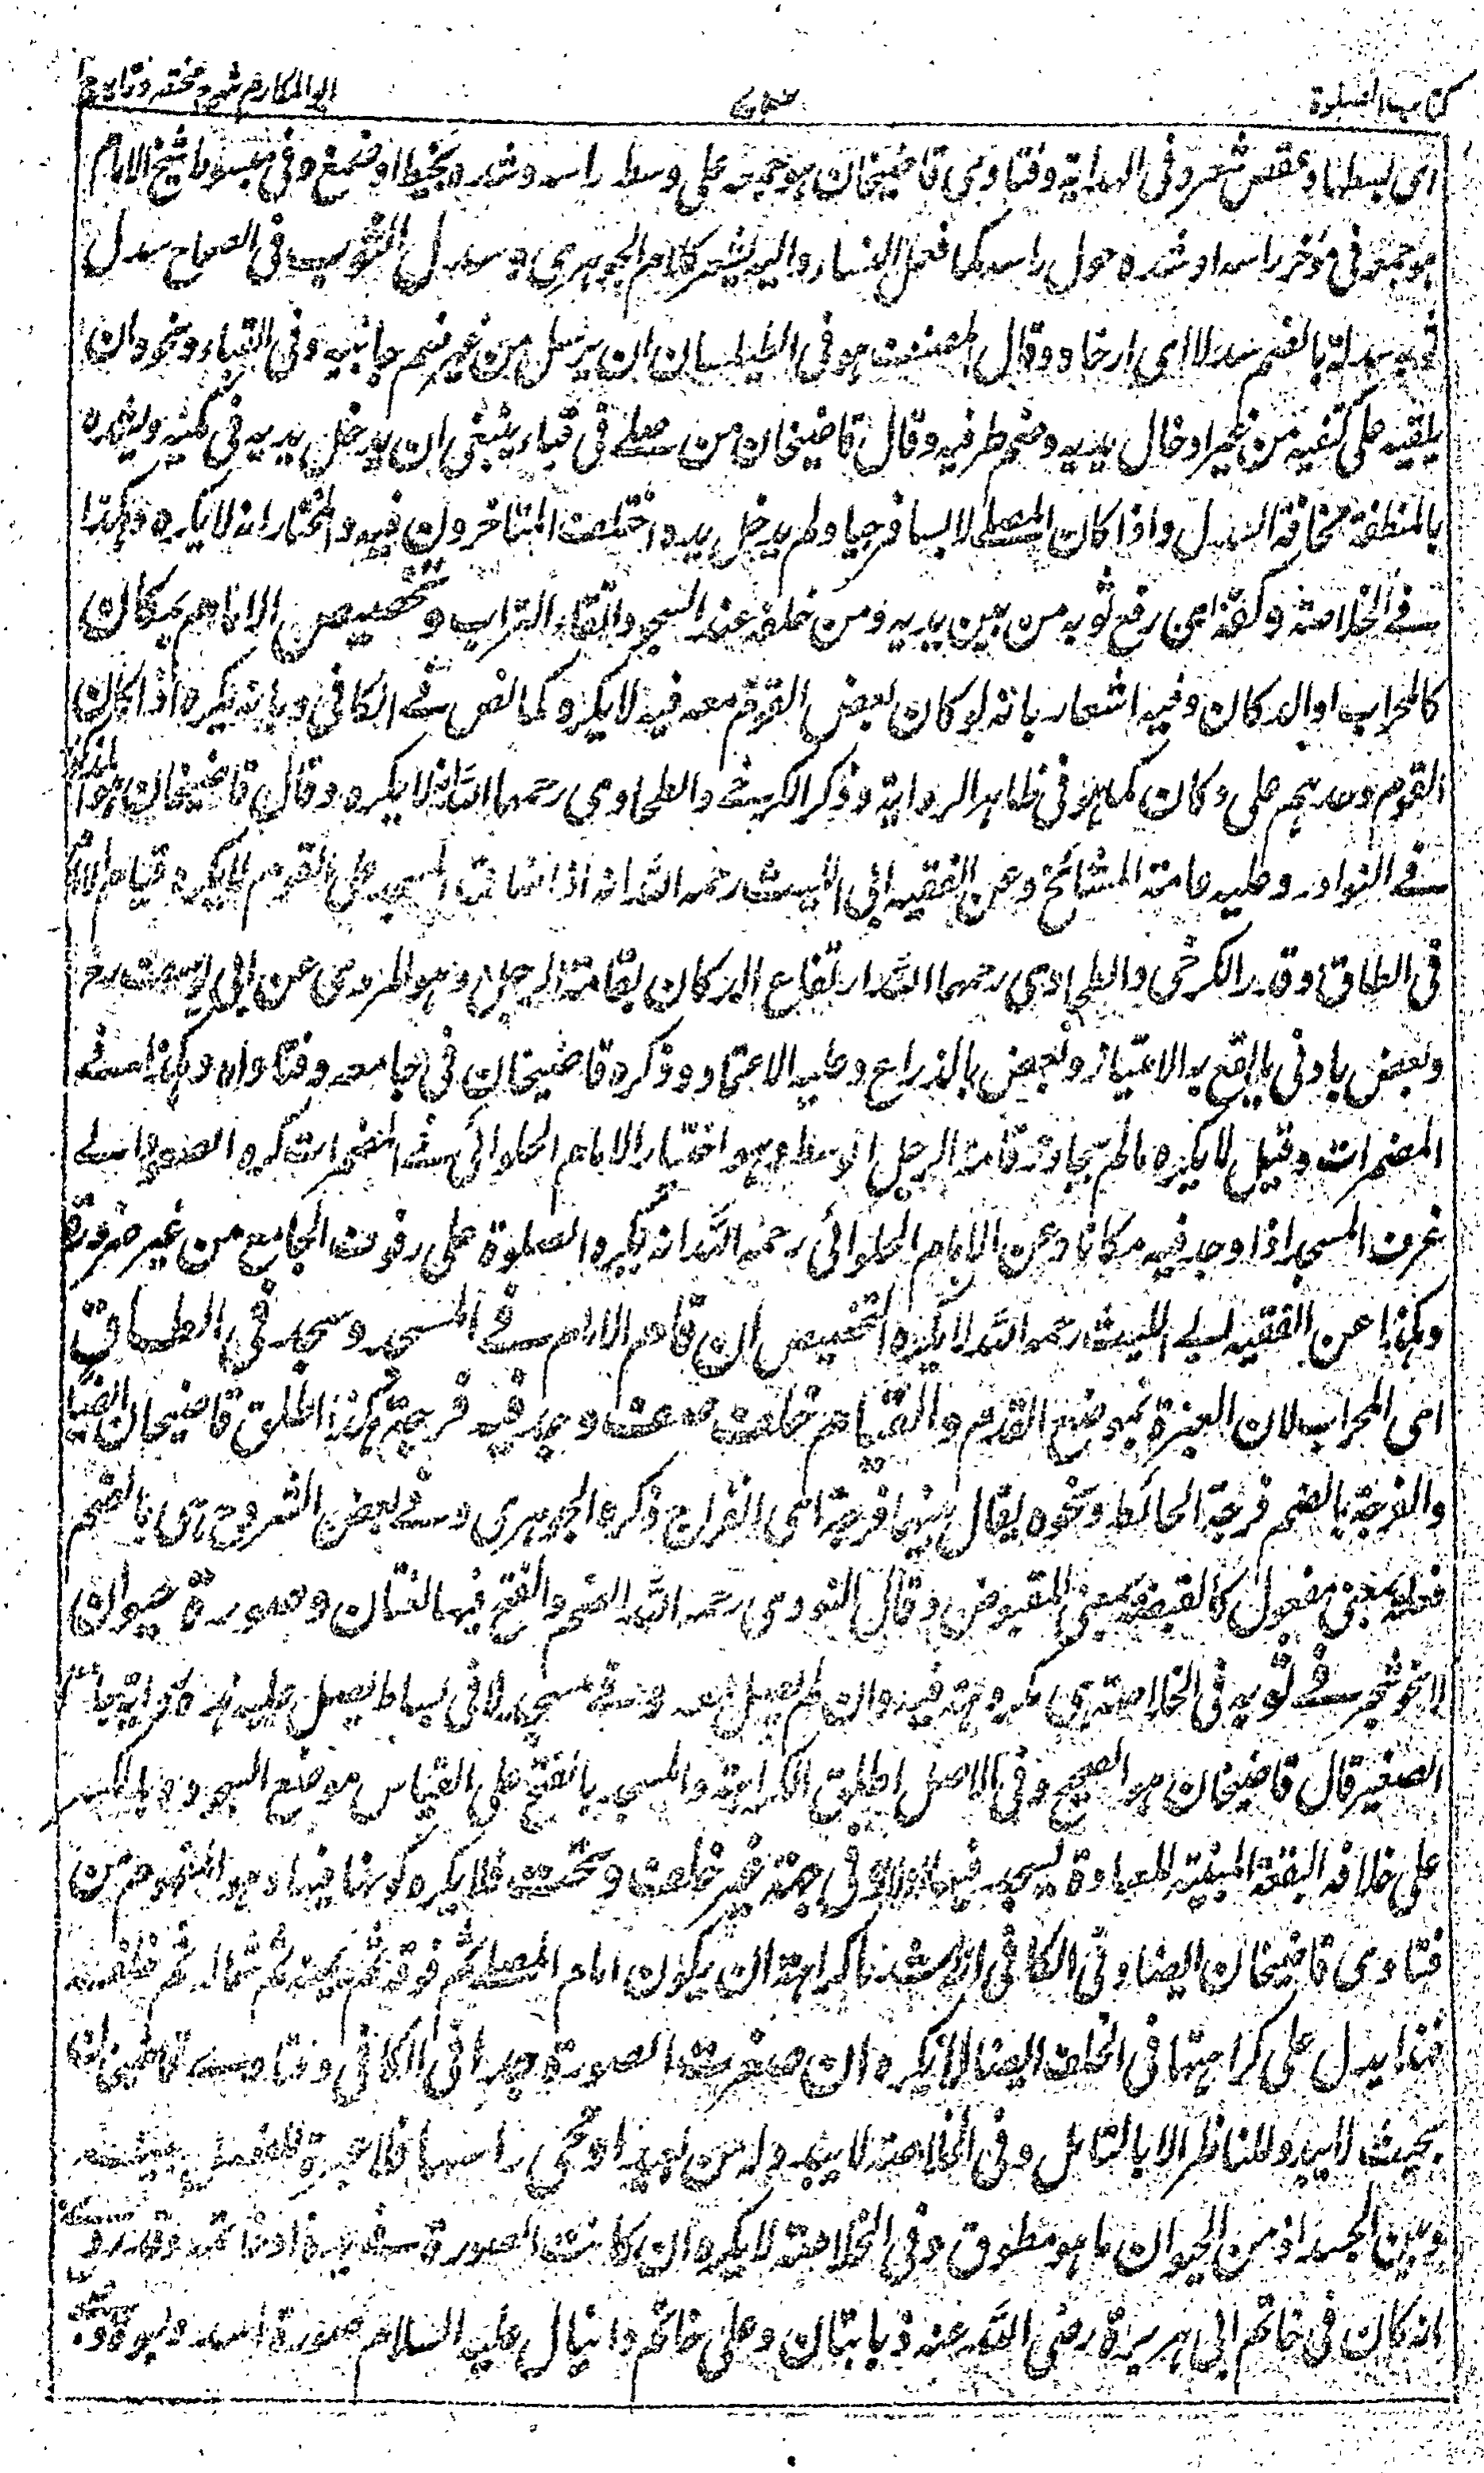 كتاب الصلوة
ابو المكارم شرح مختصر وقايه
اى بسطها وعقص شعره فى الهداية وفتاوى قاضيخان هو جمعه على وسط راسه وشده بخيط او صمغ وفى مبسوط شيخ الامام
هو جمعه فى مؤخر راسه او شده حول راسه كما فعل النساء واليه يشير كلام الجوهرى وسدل الثوب فى الصحاح سدل
ثوبه يسدله بالضم سدلا اى ارخاه وقال المصنف هو فى الطيلسان ان يرسل من غير ضم جانبيه وفى القباء ونحوه ان
يلقيه على كتفيه من غير ادخال يديه وضم طرفيه وقال قاضيخان من صلے فى قباء ينبغى ان يدخل يديه فى كميه ويشده
بالمنطقة مخافة السدل واذا كان المصلے لابسا فرجيا ولم يدخل يده اختلف المتاخرون فيه والمختار انه لا يكره وهكذا
فے الخلاصة وكفه اى رفع ثوبه من بين يديه ومن خلفه عند السجود واتقاء التراب وتخصيص الامام بمكان
كالمحراب او الدكان وفيه اشعار بانه لو كان بعض القوم معه فيه لا يكره كما نص فے الكافى وبانه يكره اذا كان
القوم وحدهم على دكان كما هو فى ظاهر الرواية وذكر الكرخے والطحاوى رحمهما الله انه لا يكره وقال قاضيخان هو المذكور
فے النوادر وعليه عامة المشائخ وعن الفقيه ابى الليث رحمه الله انه اذا ضاقت المسجد على القوم لا يكره قيام الامام
فى الطاق وقدر الكرخى والطحاوى رحمهما الله ارتفاع الدكان بقامة الرجل وهو المروى عن ابى يوسف رح
وبعض بادنى ما يقع به الامتياز وبعض بالذراع وعليه الاعتماد وذكره قاضيخان فى جامعه وفتاواه وهكذا فے
المضمرات وقيل لا يكره ما لم يجاوز قامة الرجل الاوسط وهو اختيار الامام الحلوائى فے المضمرات كره الصعود الے
غرف المسجد اذا وجد فيه مكانا وعن الامام الحلوائى رحمه الله انه يكره الصلوة على رفوف الجامع من غير ضرورة
وهكذا عن الفقيه ابے الليث رحمه الله لا يكره التخصيص ان قام الامام فے المسجد وسجد فى الطاق
اى المحراب لان العبرة بموضع القدم والقيام خلف صف وجد فيه فرجة هكذا اطلق قاضيخان ايضا
والفرجة بالضم فرجة الحائط ونحوه يقال بينهما فرجة اى انفراج ذكره الجوهرى وفے بعض الشروح هى بالضم
فعلة بمعنى مفعول كالقبضة بمعنى المقبوض وقال النووى رحمه الله الضم والفتح فيها لغتان وصورة حيوان
لا نحو شجر فے ثوبه فى الخلاصة هى مكروهة فيه وان لم يصل معه وفے مسجده لا فى بساط يصل عليه هذه رواية جامع
الصغير قال قاضيخان هو الصحيح وفى الاصل اطلق الكراهة والمسجد بالفتح على القياس موضع السجود وبالكسر
على خلافه البقعة المبنية للعبادة يسجد فيها اولا وفى جهة غير خلف وتحت فلا يكره كونها فيهما وهو المفهوم من
فتاوى قاضيخان ايضا وفى الكافى ان اشدها كراهة ان يكون امام المصلے ثم فوقه ثم يمينه ثم شماله ثم خلفه
فهذا يدل على كراهتها فى الخلف ايضا لا يكره ان صغرت الصورة جدا فى الكافى وفتاوے قاضيخان
بحيث لا يبدو للناظر الا بالتامل وفى الخلاصة لا يبدو له من بعيد او محى راسها فلا عبرة
وبين الجسد اذ من الحيوان ما هو مطوق وفى الخلاصة لا يكره ان كانت الصورة صغيرة
انه كان فى خاتم ابى هريرة رضى الله عنه ذبابتان وعلى خاتم دانيال عليه السلام صورة اسد ولبوة